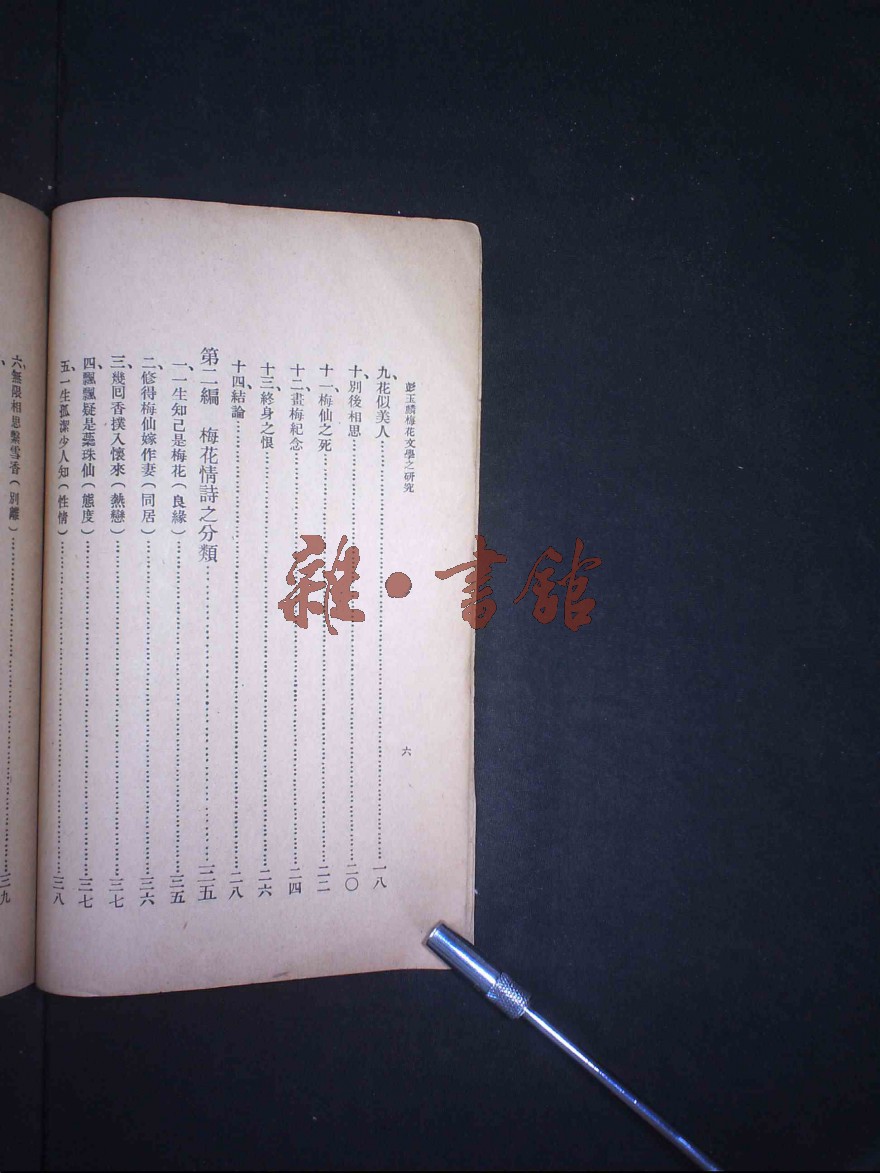 彭玉麟梅花文學之研究
六
九、花似美人……一八
十、別後相思……二〇
十一、梅仙之死……二二
十二、畫梅紀念……二四
十三、終身之恨……二六
十四、結論……二八
第二編　梅花情詩之分類……三五
一、一生知己是梅花(良緣)……三五
二、修得梅仙嫁作妻(同居)……三六
三、幾回香撲入懷來(熱戀)……三七
四、飄飄疑是蘂珠仙(態度)……三七
五、一生孤潔少人知(性情)……三八
六、無限相思繫雪香(別離)……三九
雜·書館